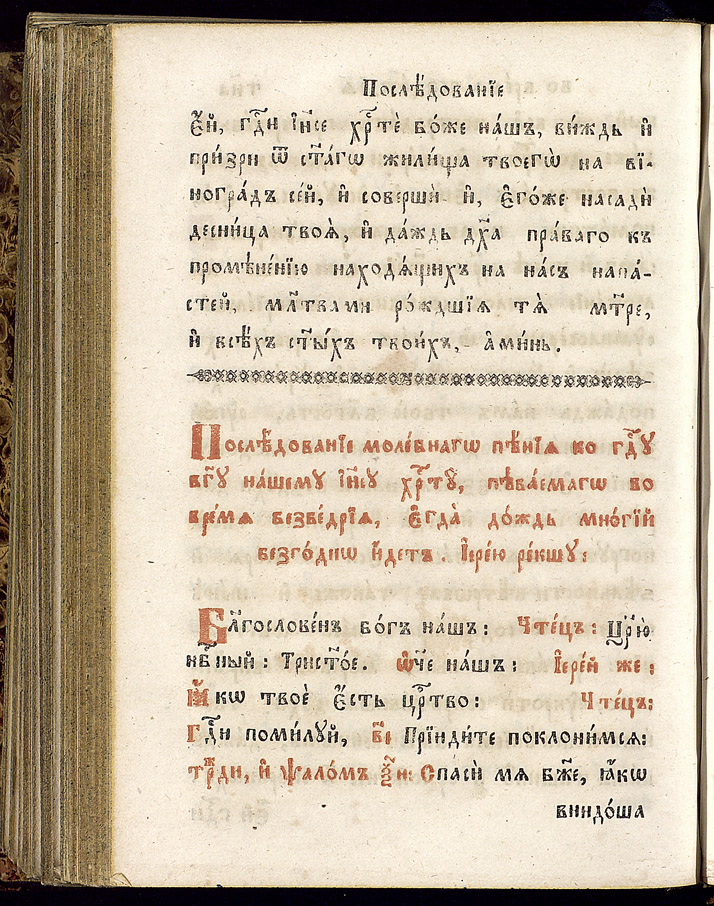 Послѣ́дованїе
Е҆́й, гдⷭ҇и і҆и҃се хрⷭ҇тѐ бо́же на́шъ, ви́ждь и҆
при́зри ѿ ст҃а́гѡ жили́ща твоегѡ̀ на вї-
ногра́дъ се́й, и҆ совершѝ и҆̀, є҆го́же насадѝ
десни́ца твоѧ̀, и҆ да́ждь дх҃а пра́ваго къ
промѣне́нїю находѧ́щихъ на на́съ напа́-
стей, мл҃твами ро́ждшїѧ тѧ̀ мт҃ре,
и҆ всѣ́хъ ст҃ы́хъ твои́хъ, а҆ми́нь.
Послѣ́дованїе моле́бнагѡ пѣ́нїѧ ко гдⷭ҇ꙋ
бг҃ꙋ на́шемꙋ і҆и҃сꙋ хрⷭ҇тꙋ̀, пѣва́емагѡ во
вре́мѧ безве́дрїѧ, є҆гда̀ до́ждь мно́гїй
безго́днѡ и҆́детъ. І҆ере́ю ре́кшꙋ:
Блг҃ослове́нъ бо́гъ на́шъ: Чте́цъ: Цр҃ю̀
нбⷭ҇ный: Трист҃о́е. Ѻ҆́ч҃е на́шъ: І҆ере́й же:
Ꙗ҆́кѡ твоѐ є҆́сть црⷭ҇тво: Чте́цъ:
Гдⷭ҇и поми́лꙋй, в҃і Прїиди́те поклони́мсѧ:
три́жди, и҆ ѱало́мъ ѯ҃и: Спаси́ мѧ бж҃е, ꙗ҆́кѡ
внидо́ша